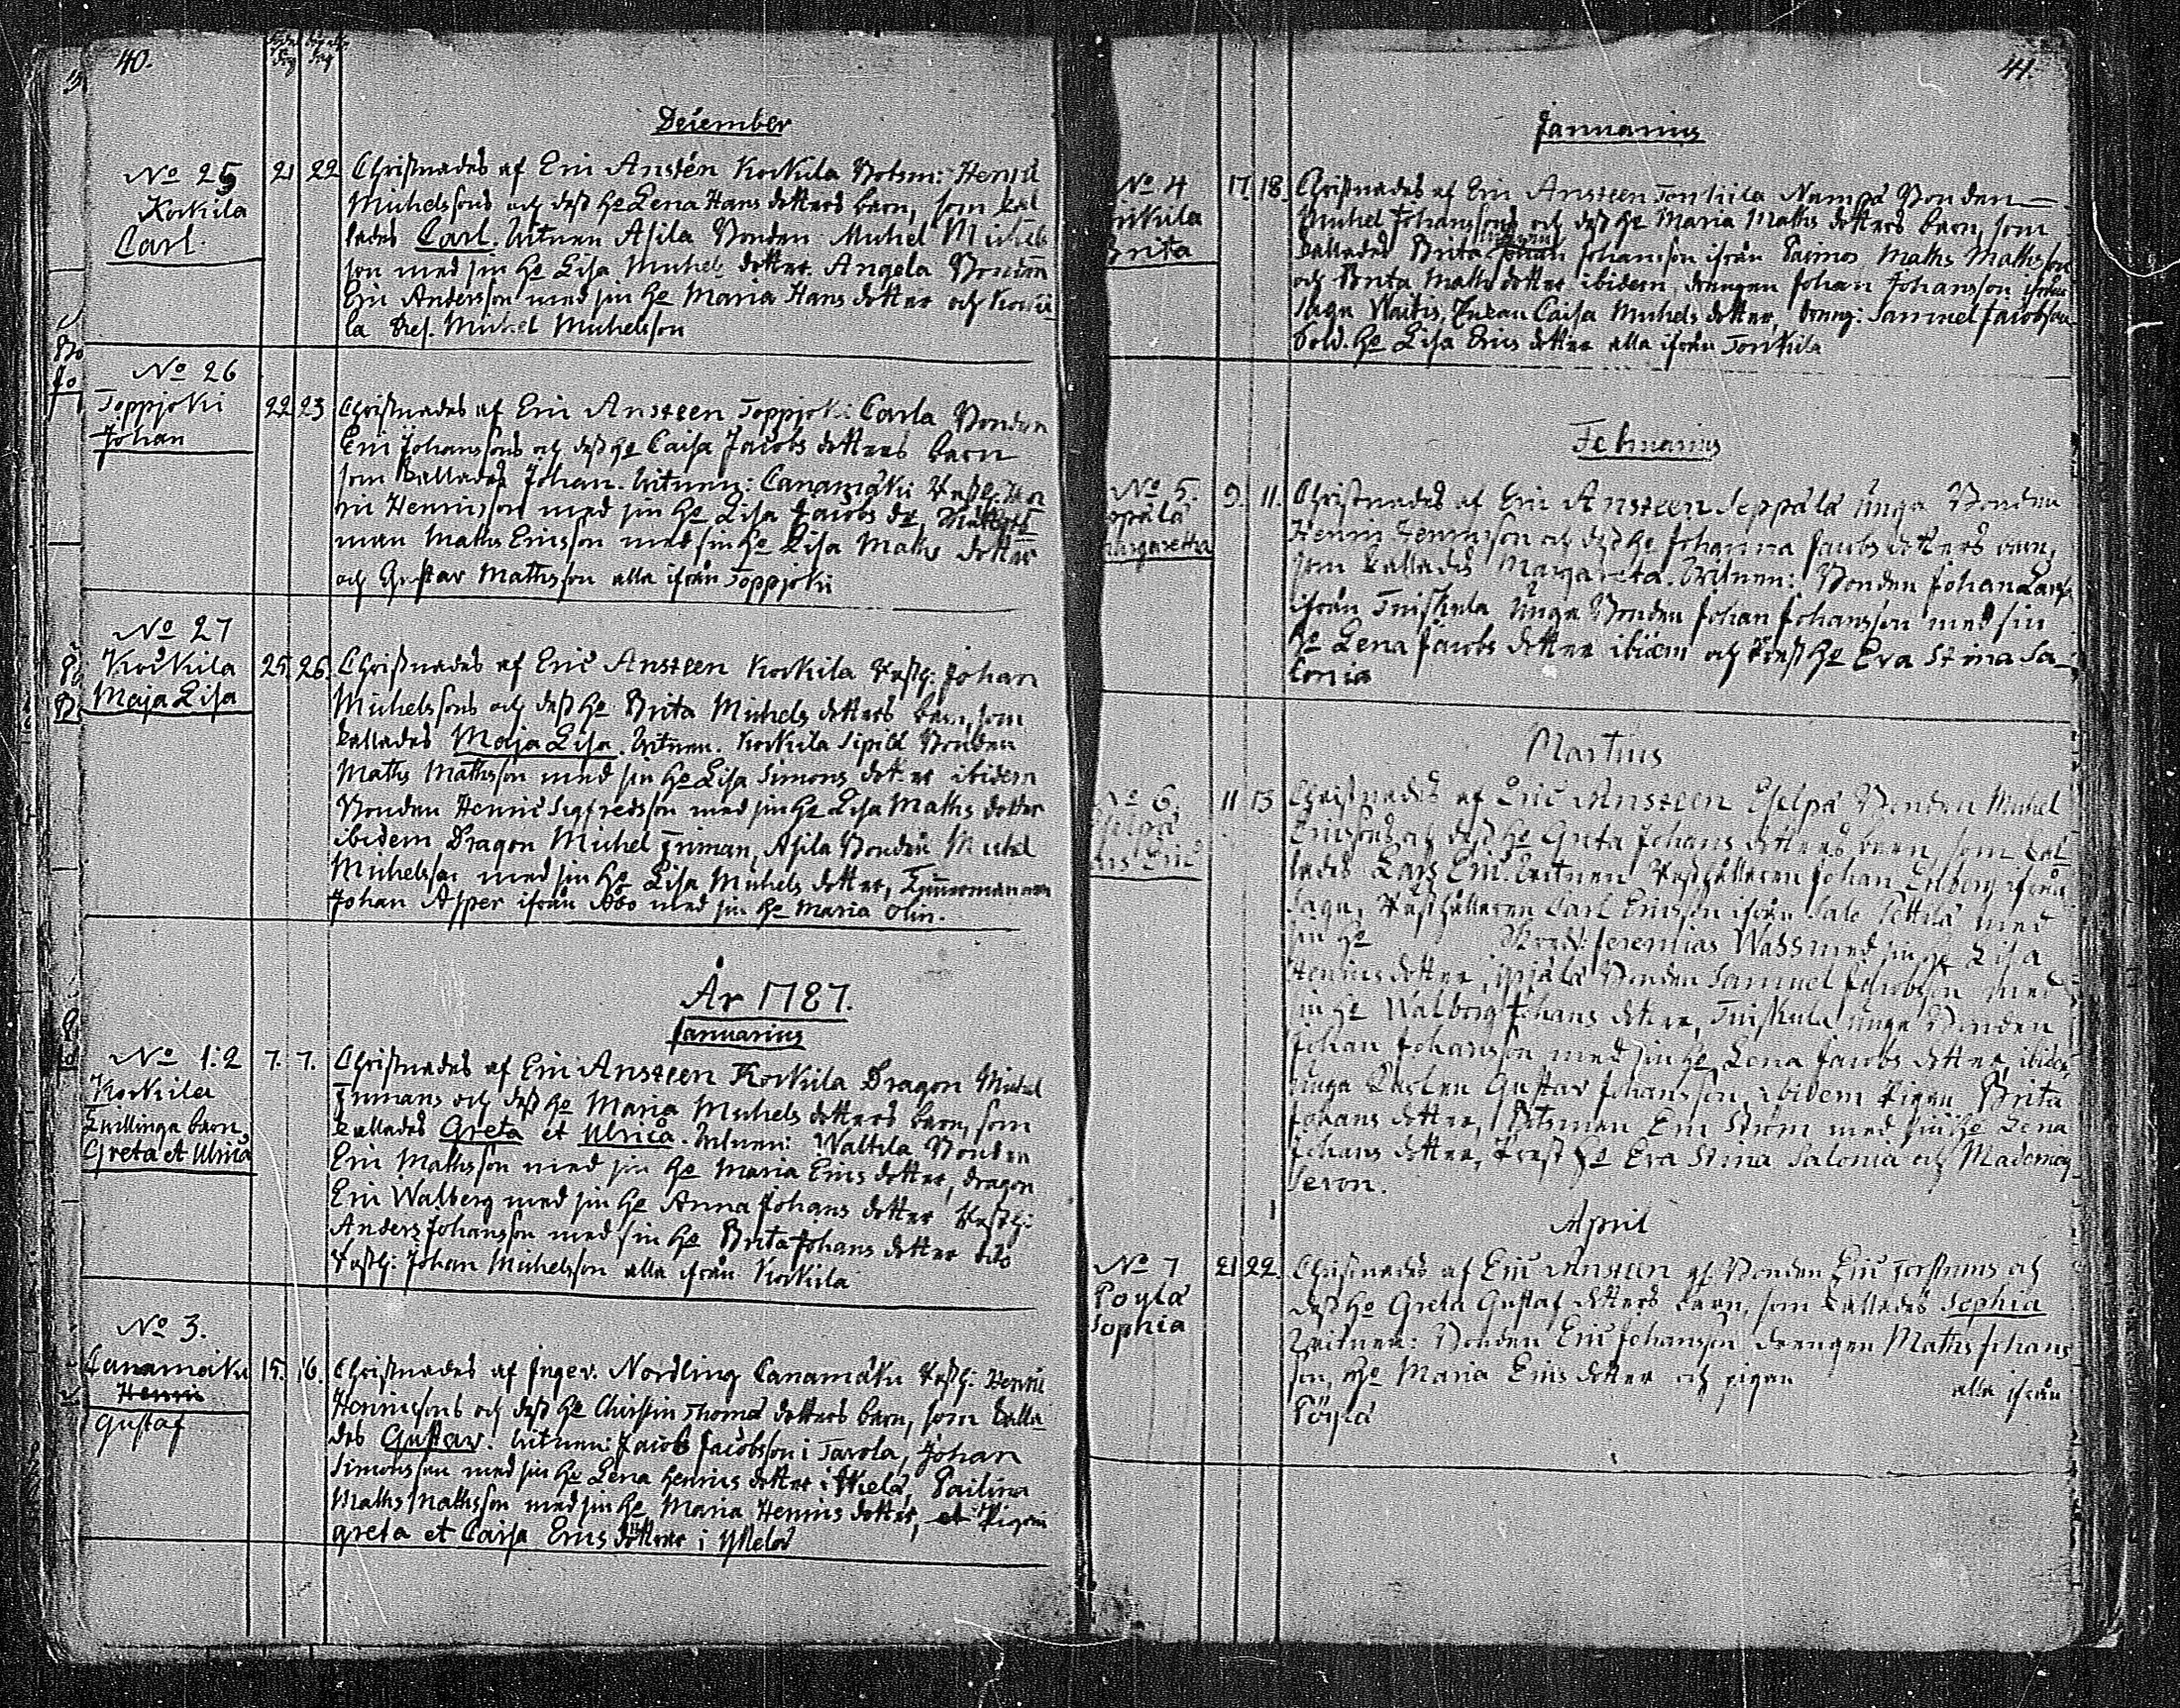 40.
December
No 25
Korkila
Carl.
21 22
Christnades af Eric Anstén Korkila Botsm: Henric
Michelssons och dess H. Lena Hans dotters barn, som kal
lades Carl. Witnen Asila Bonden Michel Michels
son med sin H. Lisa Michels dotter. Angela Bonden
Eric Andersson med sin H. Maria Hans dotter och Korki
la Michel Michelsson
No 26
Toppjoki
Johan
22 23
Christnades af Eric Ansteen Toppjoki Carla Bonden
Eric Johanssons och dess H. Caisa Jacobs dotters barn
som kallades Johan. Witnen: Canamäki Hen
ric Henricsson med sin H. Lisa Jacobs dr,
man Maths Ericsson med sin H. Lisa Maths dotter
och Gustav Mathsson alla ifrån Toppjoki
No 27
Korkila
Maja Lisa
25. 26.
Christnades af Eric Ansteen Korkila Johan
Michelssons och dess H. Brita Michels dotters barn, som
kallades Maja Lisa. Witnen. Korkila Sipilä Bonden
Maths Mathsson med sin H. Lisa Simons dotter ibidem
Bonden Henric Sigfredsson med sin H. Lisa Maths dotter
ibidem Dragon Michel Friman, Asila Bonden Michel
Michelsson med sin H. Lisa Michels dotter, Timmermannen
Johan Asper ifrån Åbo med sin H. Maria Olin.
År 1787.
Januarius
No 1:2
Korkila
Twillinge barn
Greta et Ulrica
7. 7.
Christnades af Eric Ansteen Korkila Dragon Michel
Frimans och dess H. Maria Michels dotters barn, som
kallades Greta et Ulrica. Witnen: Waltila Bonden
Eric Mathsson med sin H. Maria Erics dotter, dragon
Eric Walberg med sin H. Anna Johans dotter
Anders Johansson med sin H. Brita Johans dotter
Johan Michelsson alla ifrån Korkila
No 3.
Canamäki
Henric
Gustaf
15. 16.
Christnades af Nordling Canamäki Henric
Henricssons och dess H. Christin Thomæ dotters barn, som kalla
des Gustav. Witnen: Jacob Jacobsson i Tarola, Johan
Simonsson med sin H. Lena Henrics dotter i Pailina
Maths Mathsson med sin H. Maria Henrics dotter, et Pigan
greta et Caisa Erics döttrar i
41.
Januarius
No 4
Brita
17. 18.
Christnades af Eric Ansteen Tonkila Nampa Bonden
Michel Johanssons och dess H. Maria Maths dotters barn, som
kallades Brita Johansson ifrån Paimos Maths Mathsson
och Brita Maths dotter ibidem, drengen Johan Johansson ifrån
Sagu Waitis, Caisa Michels dotter, dreng: Samuel Jacobsson
Sold. H. Lisa Erics dotter alla ifrån Tonkila
Februarius
No 5.
Margareta
9. 11.
Christnades af Eric Ansteen Seppälä Unga Bonden
Henric Henricsson och dess H. Johanna Jacobs dotters barn,
som kallades Margareta. Witnen: Bonden Johan Larsson
ifrån Tuiskula Unga Bonden Johan Johansson med sin
H. Lena Jacobs dotter ibidem och H. Eva Stina Sa
lonia
Martius
No 6.
11 13
Christnades af Eric Ansteen Eselpä Bonden Michel
Ericssons och dess H. Greta Johans dotters barn, som kal
lades Lars Eric. Witnen Rusthållaren Johan Enberg ifrån
Sagu, Rusthållaren Carl Ericsson ifrån Salo Pettilä med
sin H. Jeremias Wass med sin H. Lisa
Henrics dotter, Bonden Samuel Jacobsson med
sin H. Walborg Johans dotter, Tuiskula Unga Bonden
Johan Johansson med sin H. Lena Jacobs dotter, ibidem
Unga Gustav Johansson, ibidem Pigan Brita
Johans dotter, Botsman Eric Ström med sin H. Lena
Johans dotter, H. Eva Stina Salonia och Mademoi
seron.
April
No 7
Poylä
Sophia
21 22.
Christnades af Eric Ansteen af Bonden Eric Forstroms och
dess H. Greta Gustaf dotters barn, som kallades Sophia
Witnen: Bonden Eric Johansson drengen Maths Johans
son, H. Maria Erics dotter och pigan alla ifrån
Pöylä